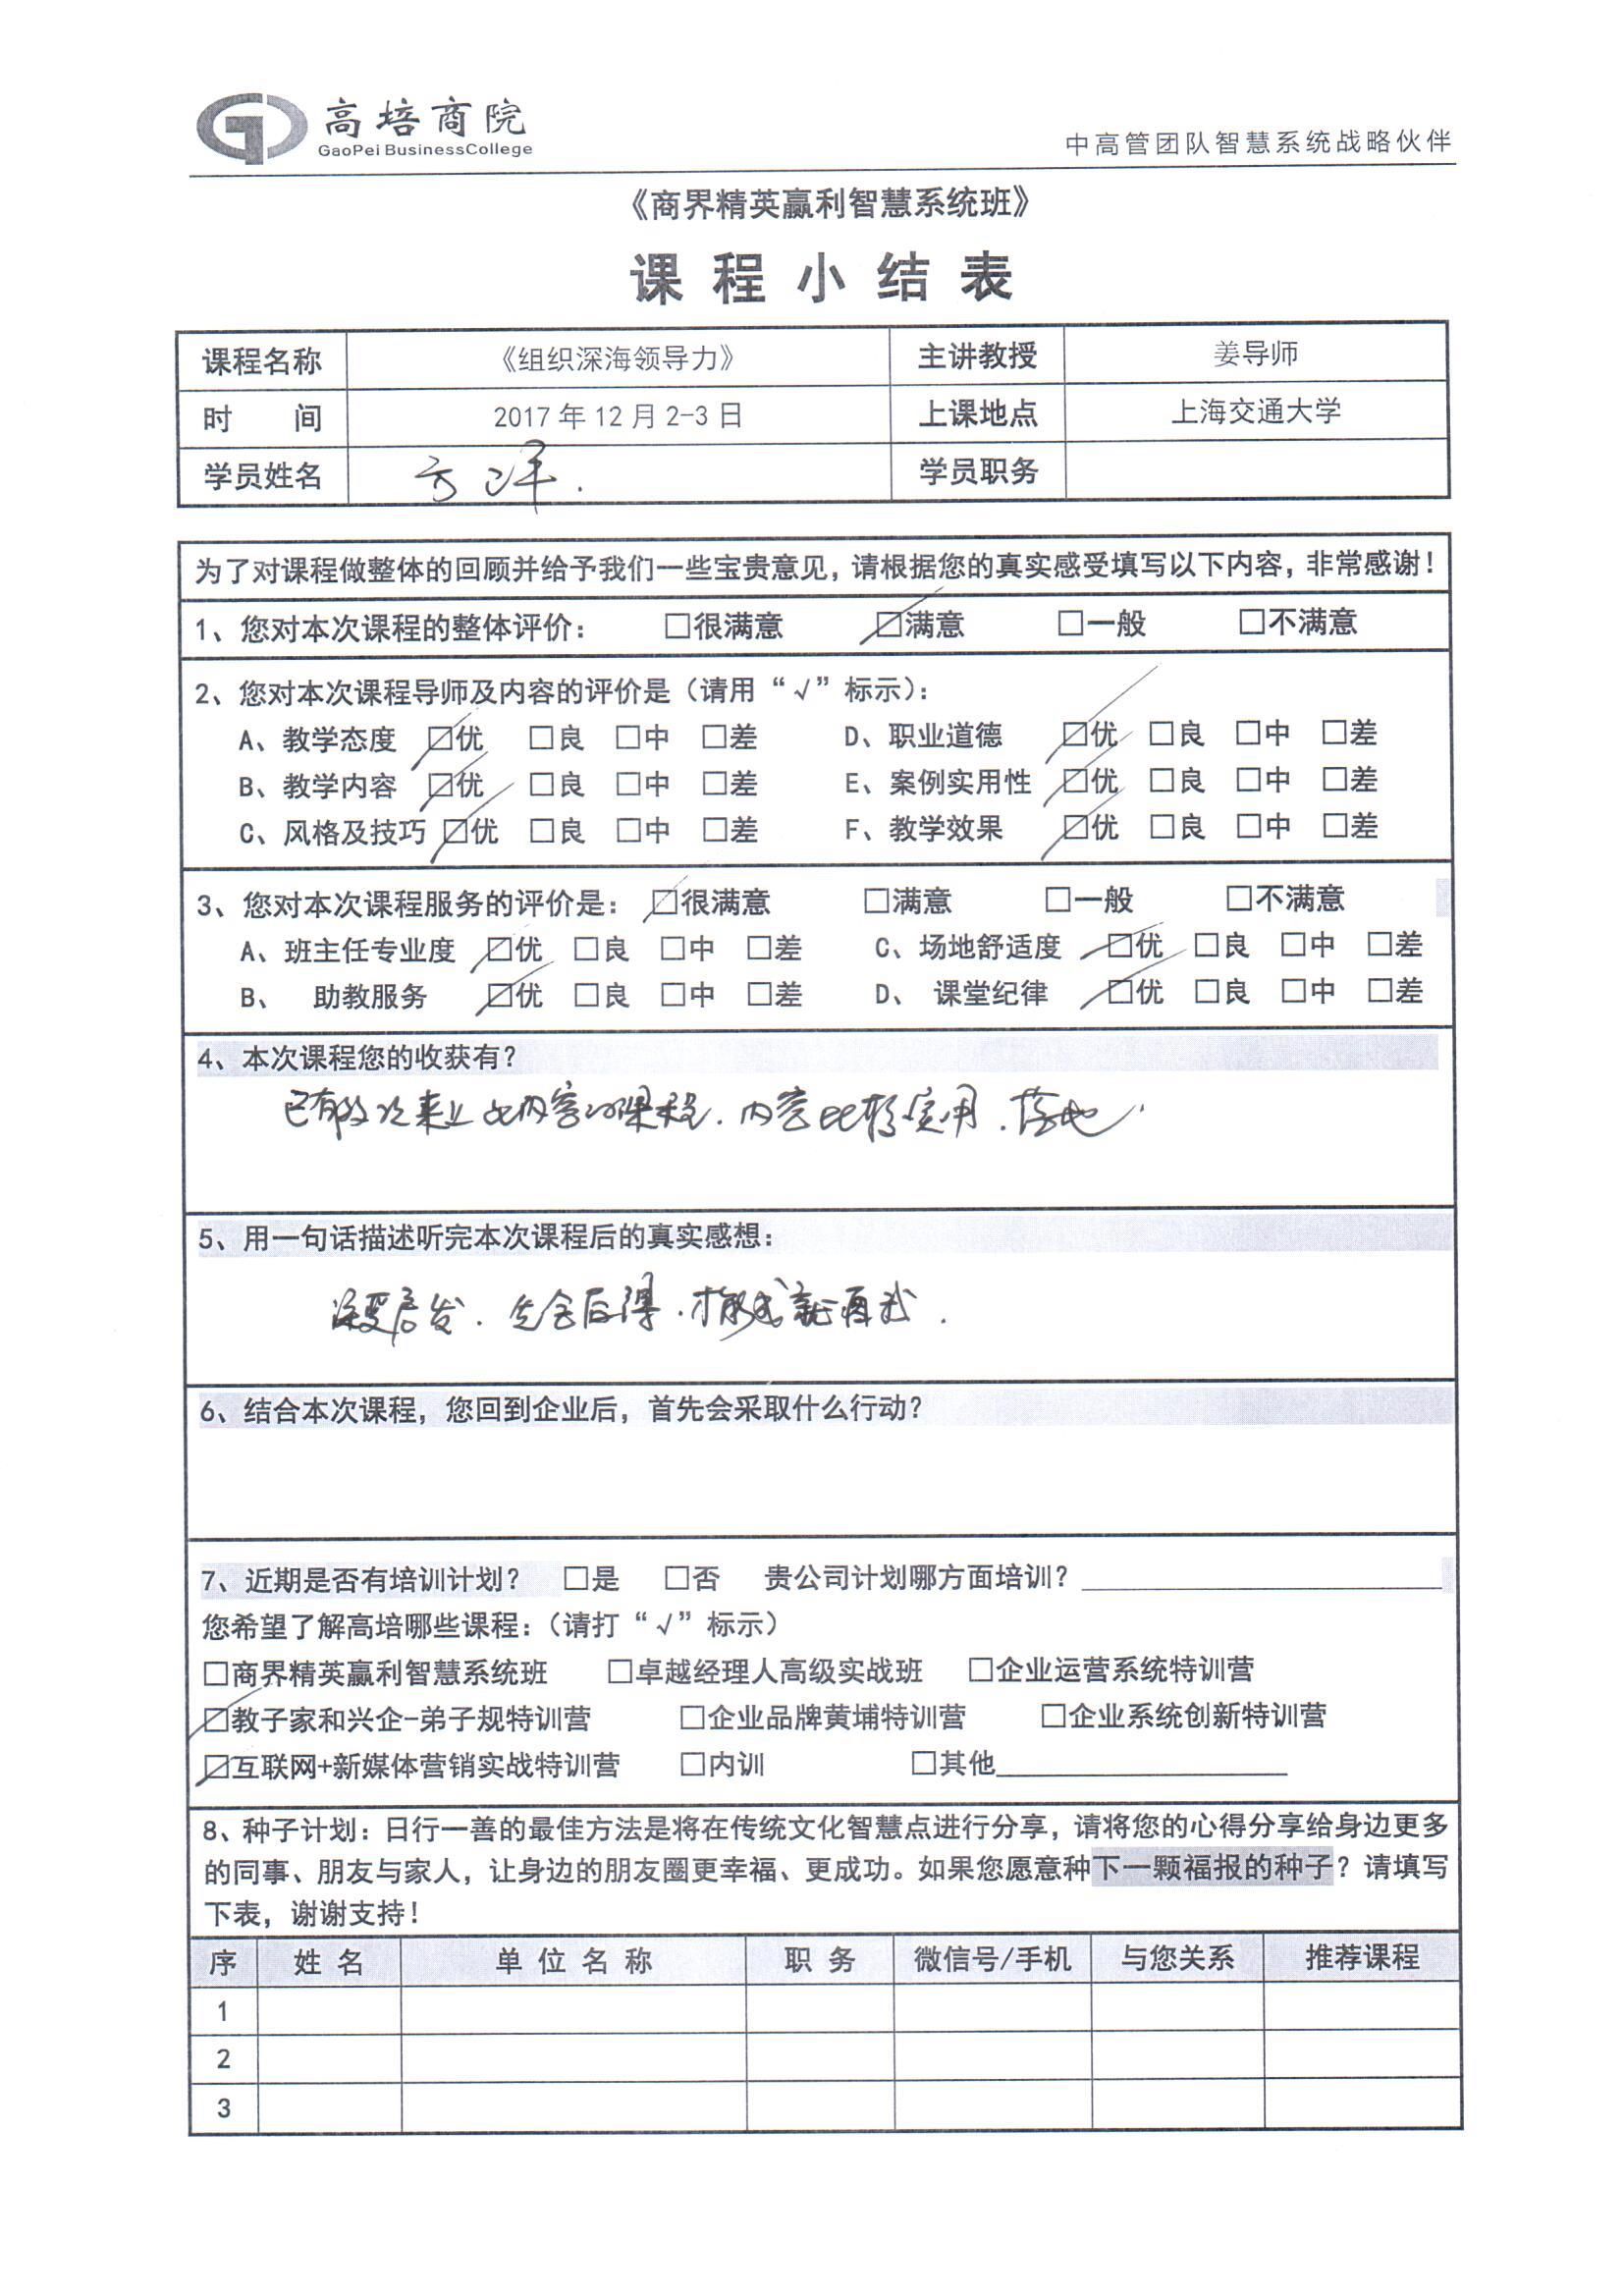 高培商院
GaoPei BusinessCollege
中高管团队智慧系统战略伙伴
《商界精英赢利智慧系统班》
课程小结表
课程名称 《组织深海领导力》 主讲教授 姜导师
时 间 2017年12月2-3日 上课地点 上海交通大学
学员姓名 方洋. 学员职务
为了对课程做整体的回顾并给予我们一些宝贵意见，请根据您的真实感受填写以下内容，非常感谢！
1、您对本次课程的整体评价： □很满意 ☑满意 □一般 □不满意
2、您对本次课程导师及内容的评价是（请用“√”标示）：
A、教学态度 ☑优 □良 □中 □差 D、职业道德 ☑优 □良 □中 □差
B、教学内容 ☑优 □良 □中 □差 E、案例实用性 ☑优 □良 □中 □差
C、风格及技巧 ☑优 □良 □中 □差 F、教学效果 ☑优 □良 □中 □差
3、您对本次课程服务的评价是： ☑很满意 □满意 □一般 □不满意
A、班主任专业度 ☑优 □良 □中 □差 C、场地舒适度 ☑优 □良 □中 □差
B、 助教服务 ☑优 □良 □中 □差 D、 课堂纪律 ☑优 □良 □中 □差
4、本次课程您的收获有？
已有数次来上此内容的课程.内容比较实用.落地.
5、用一句话描述听完本次课程后的真实感想：
深受启发.先舍后得.才成就自我.
6、结合本次课程，您回到企业后，首先会采取什么行动？
7、近期是否有培训计划？ □是 □否 贵公司计划哪方面培训？
您希望了解高培哪些课程：（请打“√”标示）
□商界精英赢利智慧系统班 □卓越经理人高级实战班 □企业运营系统特训营
☑教子家和兴企-弟子规特训营 □企业品牌黄埔特训营 □企业系统创新特训营
☑互联网+新媒体营销实战特训营 □内训 □其他
8、种子计划：日行一善的最佳方法是将在传统文化智慧点进行分享，请将您的心得分享给身边更多
的同事、朋友与家人，让身边的朋友圈更幸福、更成功。如果您愿意种下一颗福报的种子？请填写
下表，谢谢支持！
序 姓名 单位名称 职务 微信号/手机 与您关系 推荐课程
1
2
3